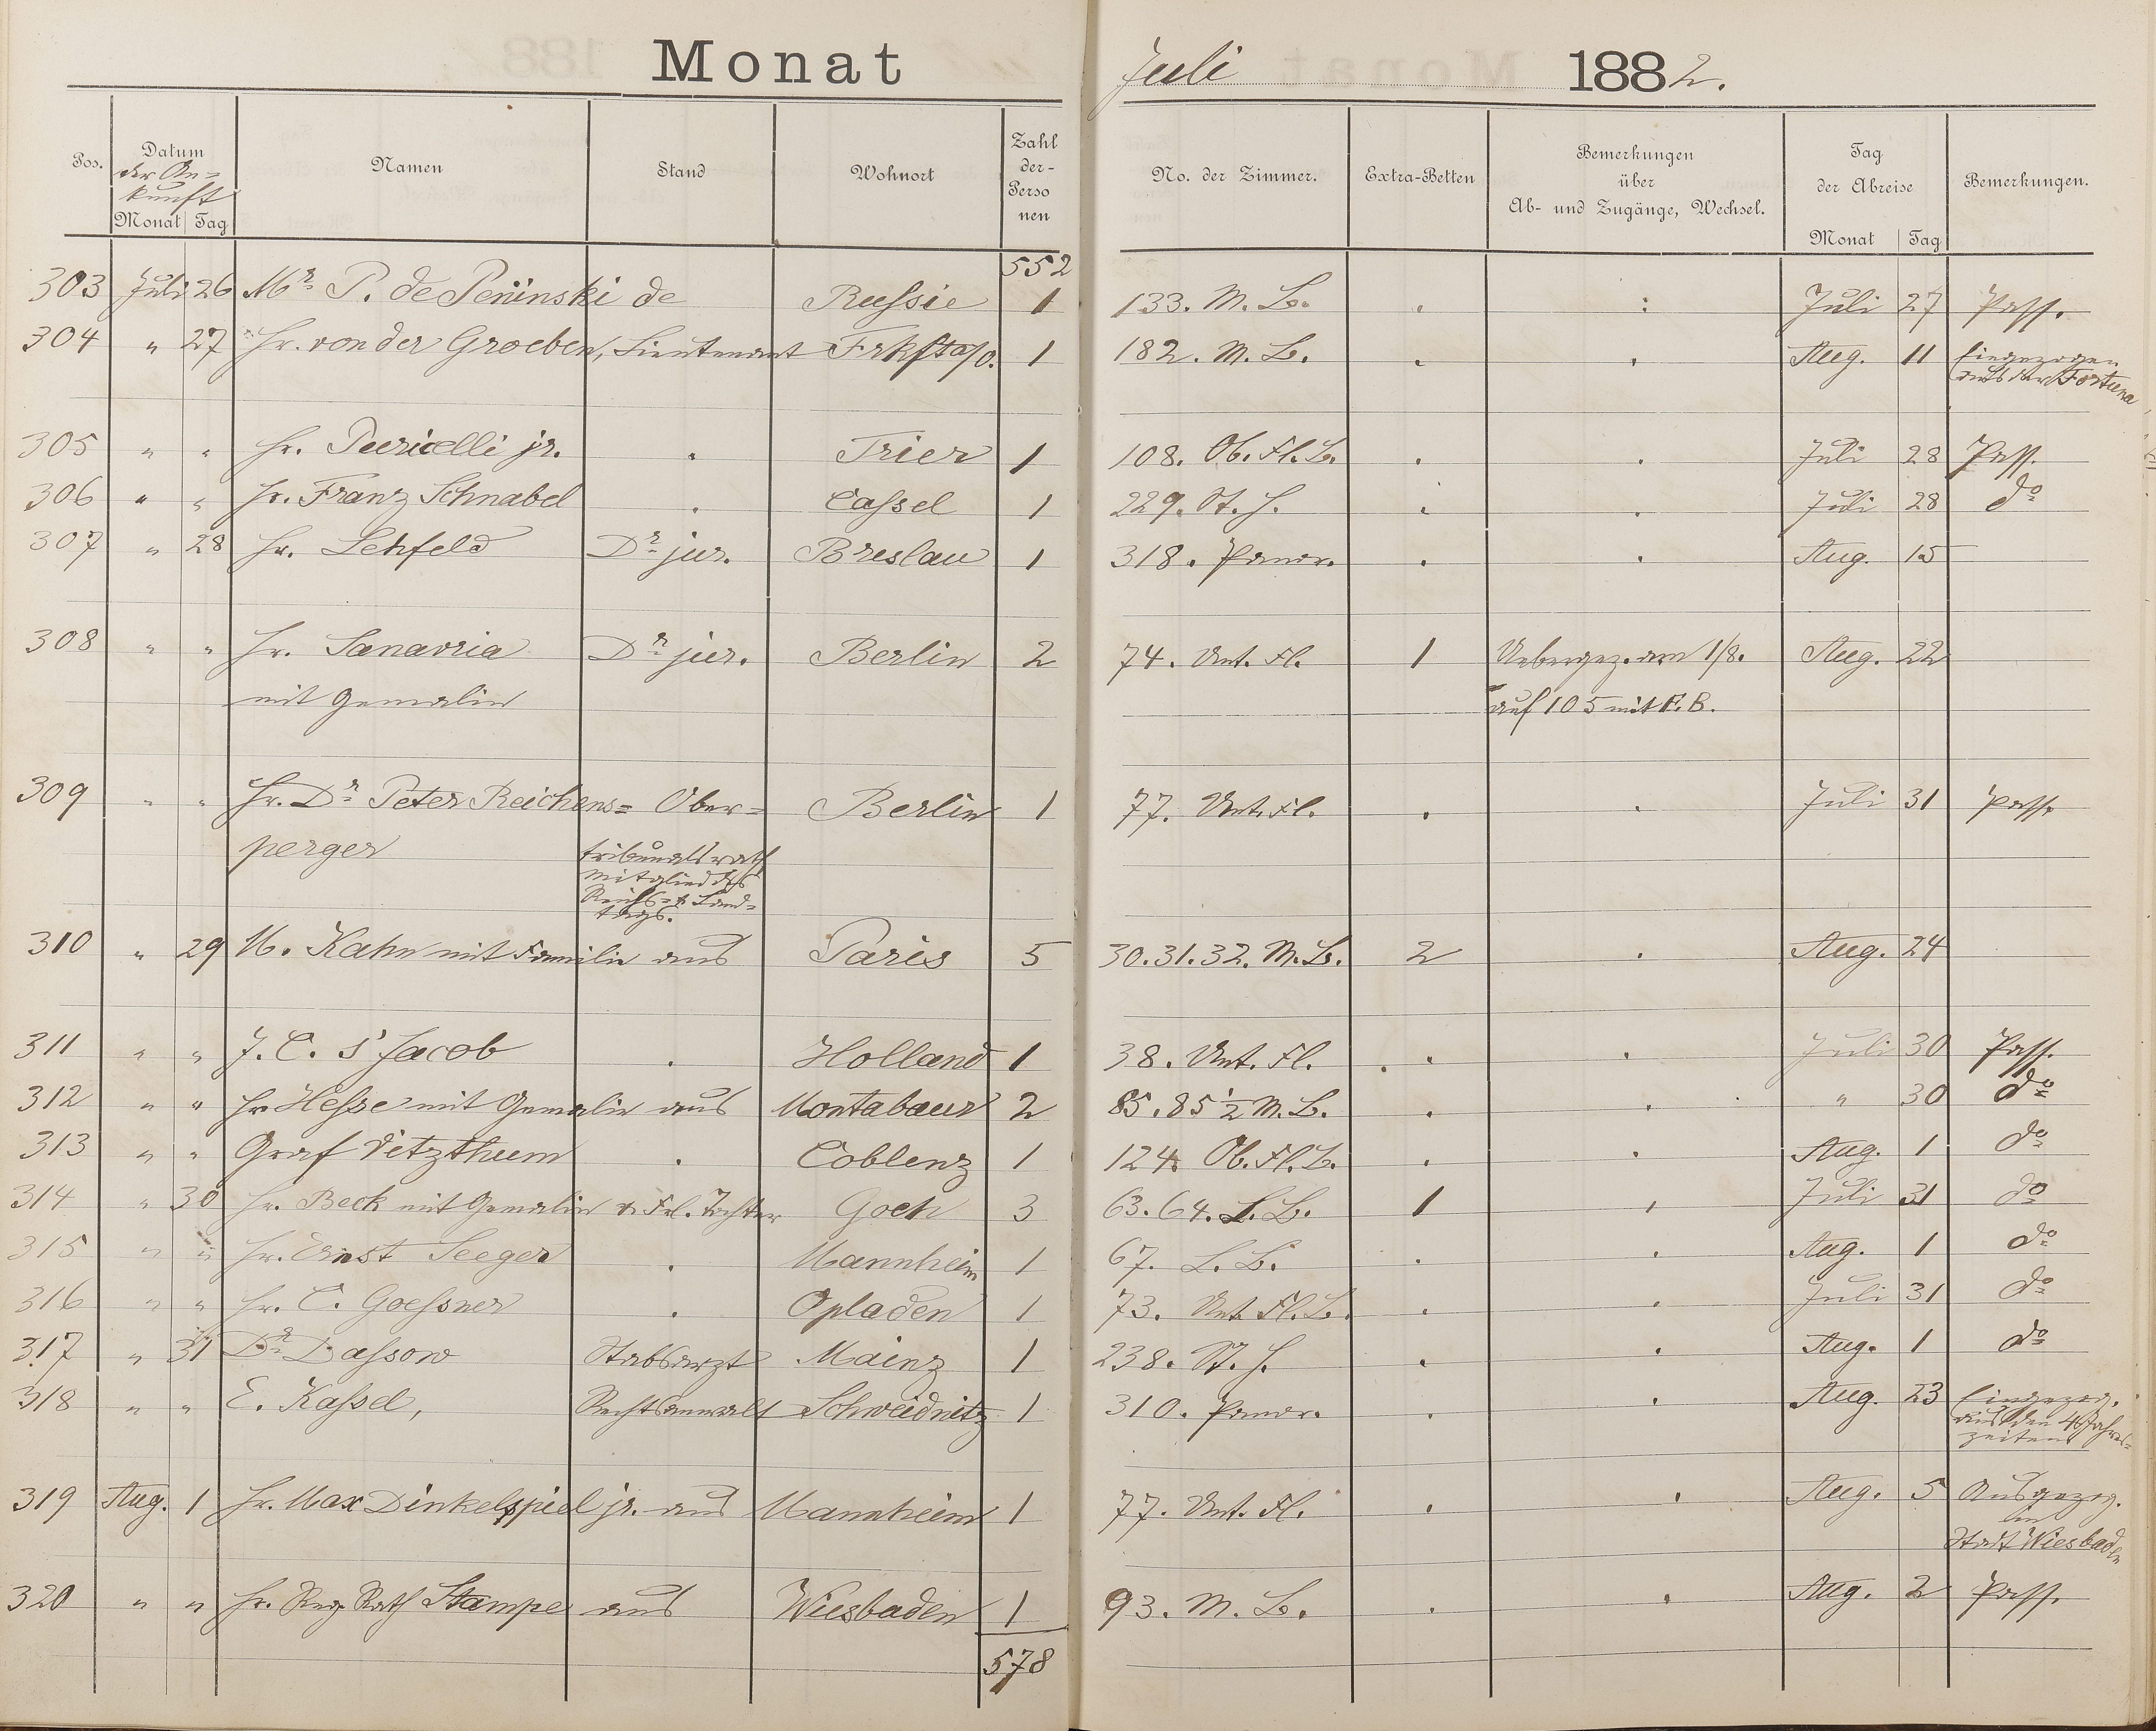 Monat Juli 1882.
Pos. Datum der An=kunft Monat Tag Namen Stand Wohnort Zahl der-Personen No. der Zimmer. Extra-Betten Bemerkungen über Ab- und Zugänge, Wechsel. Tag der Abreise Monat Tag Bemerkungen.
552
303 Juli 26 Mr. P. de Peninski de Russie 1 133. M. B. . : Juli 27 Pass.
304 " 27 Hr. von der Groeben, Lieutenant Frkft a/O. 1 182. M. B. . . Aug. 11 Eingezogen
aus der Fortuna
305 " " Hr. Puricelli jr. . Trier 1 108. Ob. Fl. B. . . Juli 28 Pass.
306 " " Hr. Franz Schnabel . Cassel 1 229. St. H. . . Juli 28 do
307 " 28 Hr. Lehfeld Dr. jur. Breslau 1 318. Panor. . . Aug. 15
308 " " Hr. Sanavria Dr. jur. Berlin 2 74. Unt. Fl. 1 Uebergez. am 1/8. Aug. 22
mit Gemalin auf 105 mit E. B.
309 " " Hr. Dr. Peter Reichens= Ober= Berlin 1 77. Unt. Fl. . . Juli 31 Pass.
perger tribunalsrath
Mitglied des
Reichs- & Land=
tags.
310 " 29 M. Kahn mit Familie aus Paris 5 30. 31. 32. M. B. 2 . Aug. 24
311 " " J. C. s'Jacob . Holland 1 38. Unt. Fl. . . Juli 30 Pass.
312 " " Hr. Hesse mit Gemalin aus Montabaur 2 85. 85 1/2 M. B. . . " 30 do
313 " " Graf Vitzthum . Coblenz 1 124. Ob. Fl. B. . . Aug. 1 do
314 " 30 Hr. Beck mit Gemalin & Frl. Tochter Goch 3 63. 64. L. B. 1 . Juli 31 do
315 " " Hr. Ernst Seeger . Mannheim 1 67. L. B. . . Aug. 1 do
316 " " Hr. C. Goessner . Opladen 1 73. Unt. Fl. B. . . Juli 31 do
317 " 31 Dr. Dassow Stabsarzt Mainz 1 238. St. H. . . Aug. 1 do
318 " " E. Kassel, Rechtsanwalt Schweidnitz 1 310. Panor. . . Aug. 23 Eingezog.
aus den 4 Jahres=
zeiten
319 Aug. 1 Hr. Max Dinkelspiel jr. aus Mannheim 1 77. Unt. Fl. . . Aug. 5 Ausgezog.
in
Stadt Wiesbaden
320 " " Hr. Reg. Rath Stampe aus Wiesbaden 1 93. M. B. . . Aug. 2 Pass.
578